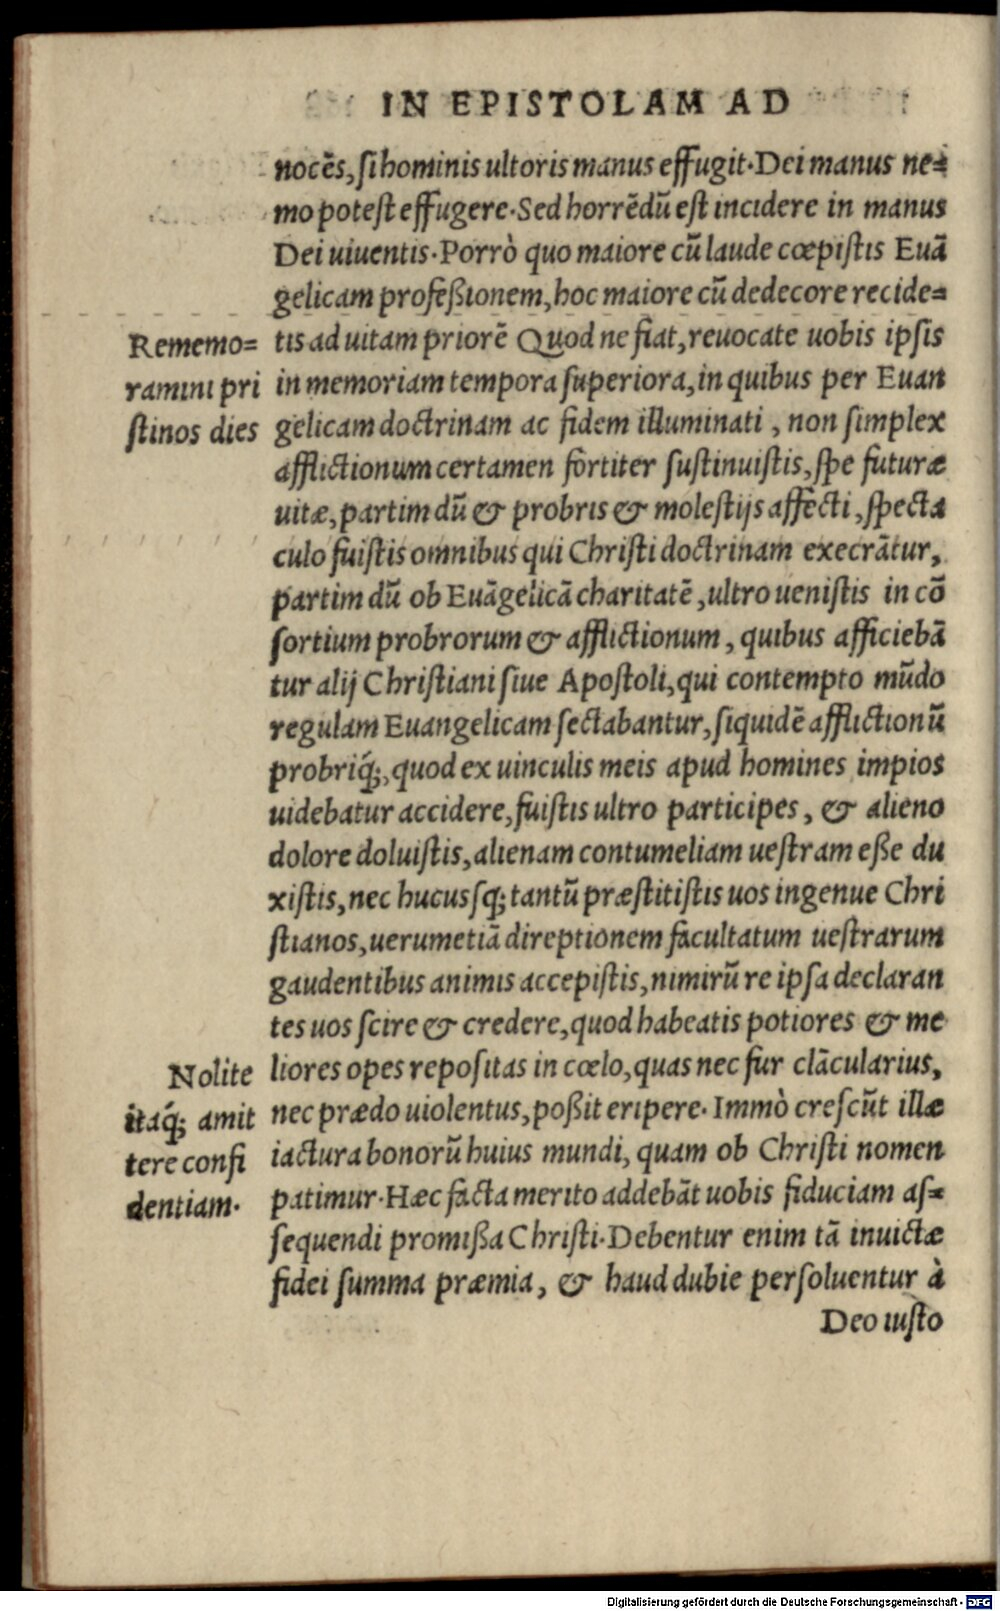 IN EPISTOLAM AD
nocẽs, ſi hominis ultoris manus effugit. Dei manus ne=
mo poteſt effugere. Sed horrẽdũ eſt incidere in manus
Dei uiuentis. Porrò quo maiore cũ laude cœpiſtis Euã
gelicam profeßionem, hoc maiore cũ dedecore recide=
tis ad uitam priorẽ Quod ne fiat, reuocate uobis ipſis
in memoriam tempora ſuperiora, in quibus per Euan
gelicam doctrinam ac fidem illuminati, non ſimplex
afflictionum certamen fortiter ſuſtinuiſtis, ſpe futuræ
uitæ, partim dũ & probris & moleſtijs affecti, ſpecta
culo fuiſtis omnibus qui Chriſti doctrinam execrãtur,
partim dũ ob Euãgelicã charitatẽ, ultro ueniſtis in cõ
ſortium probrorum & afflictionum, quibus afficiebã
tur alij Chriſtiani ſiue Apoſtoli, qui contempto mũdo
regulam Euangelicam ſectabantur, ſiquidẽ afflictionũ
probriq́;, quod ex uinculis meis apud homines impios
uidebatur accidere, fuiſtis ultro participes, & alieno
dolore doluiſtis, alienam contumeliam ueſtram eße du
xiſtis, nec hucuſq; tantũ præſtitiſtis uos ingenue Chri
ſtianos, uerumetiã direptionem facultatum ueſtrarum
gaudentibus animis accepiſtis, nimirũ re ipſa declaran
tes uos ſcire & credere, quod habeatis potiores & me
liores opes repoſitas in cœlo, quas nec fur clãcularius,
nec prædo uiolentus, poßit eripere. Immò creſcũt illæ
iactura bonorũ huius mundi, quam ob Chriſti nomen
patimur. Hæc facta merito addebãt uobis fiduciam aſ=
ſequendi promißa Chriſti. Debentur enim tã inuictæ
fidei ſumma præmia, & haud dubie perſoluentur à
Deo iuſto
Rememo=
ramini pri
ſtinos dies
Nolite
itaq́; amit
tere confi
dentiam.
Digitalisierung gefördert durch die Deutsche Forschungsgemeinschaft - DFG